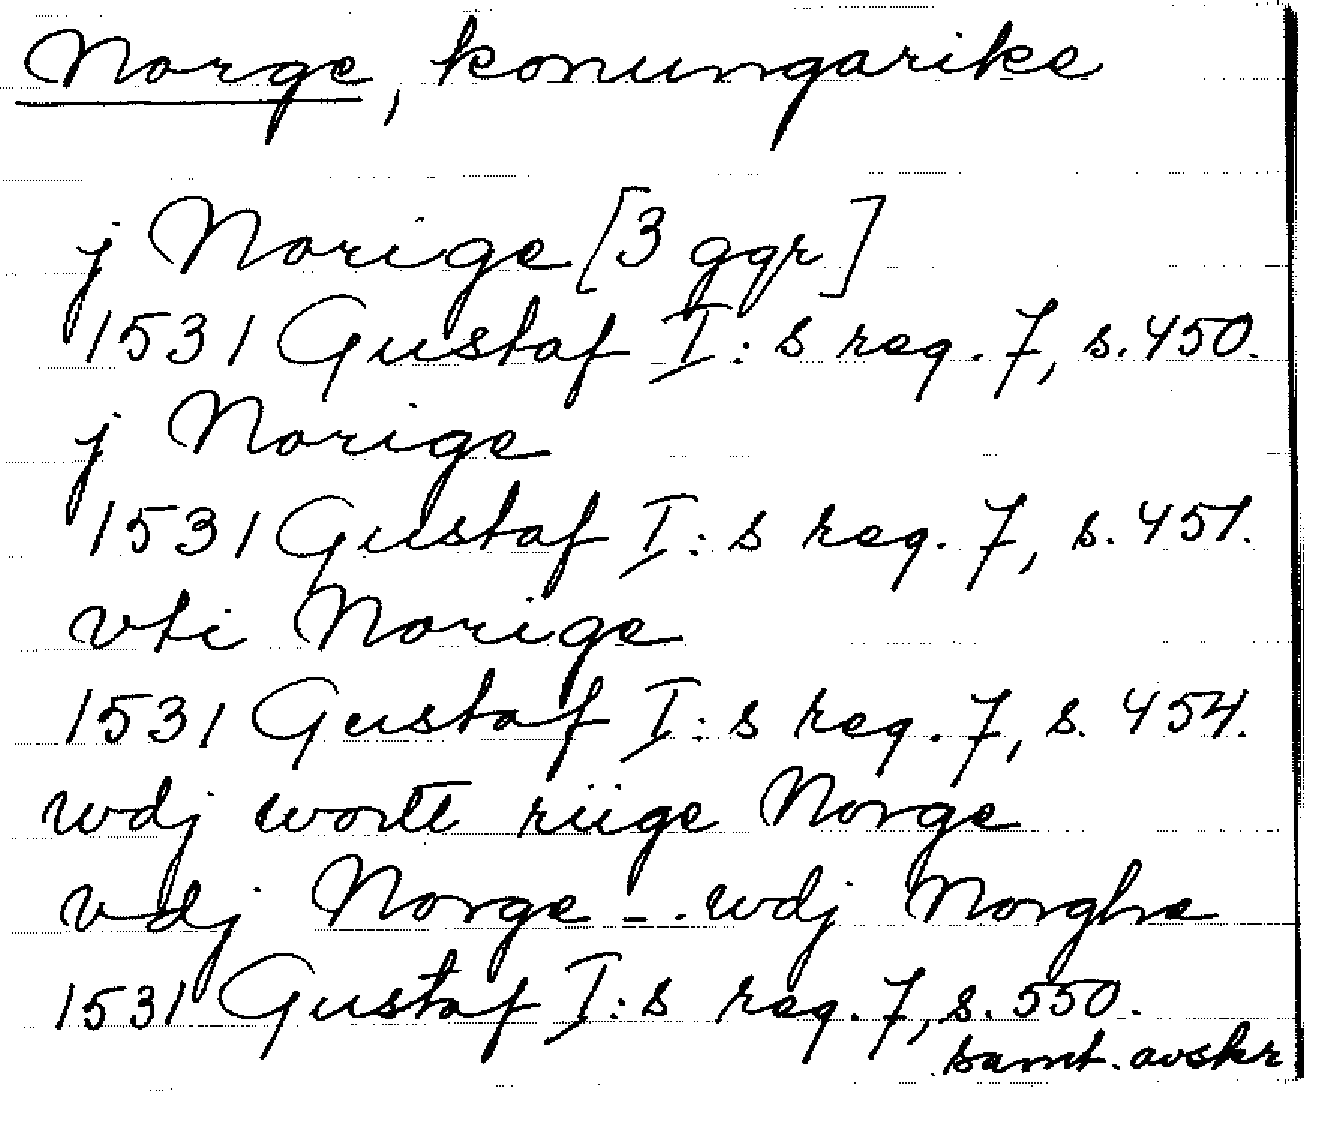 Norge, konungarike
j Norige [3 ggr]
1531 Gustaf I:s reg. 7, s. 450.
j Norige
1531 Gustaf I:s reg. 7, s. 451.
vti Norige
1531 Gustaf I:s reg. 7, s. 454.
wdj wortt riige Norge
vdj Norge - - wdj Norghe
1531 Gustaf I:s reg. 7, s. 550.
samt. avskr